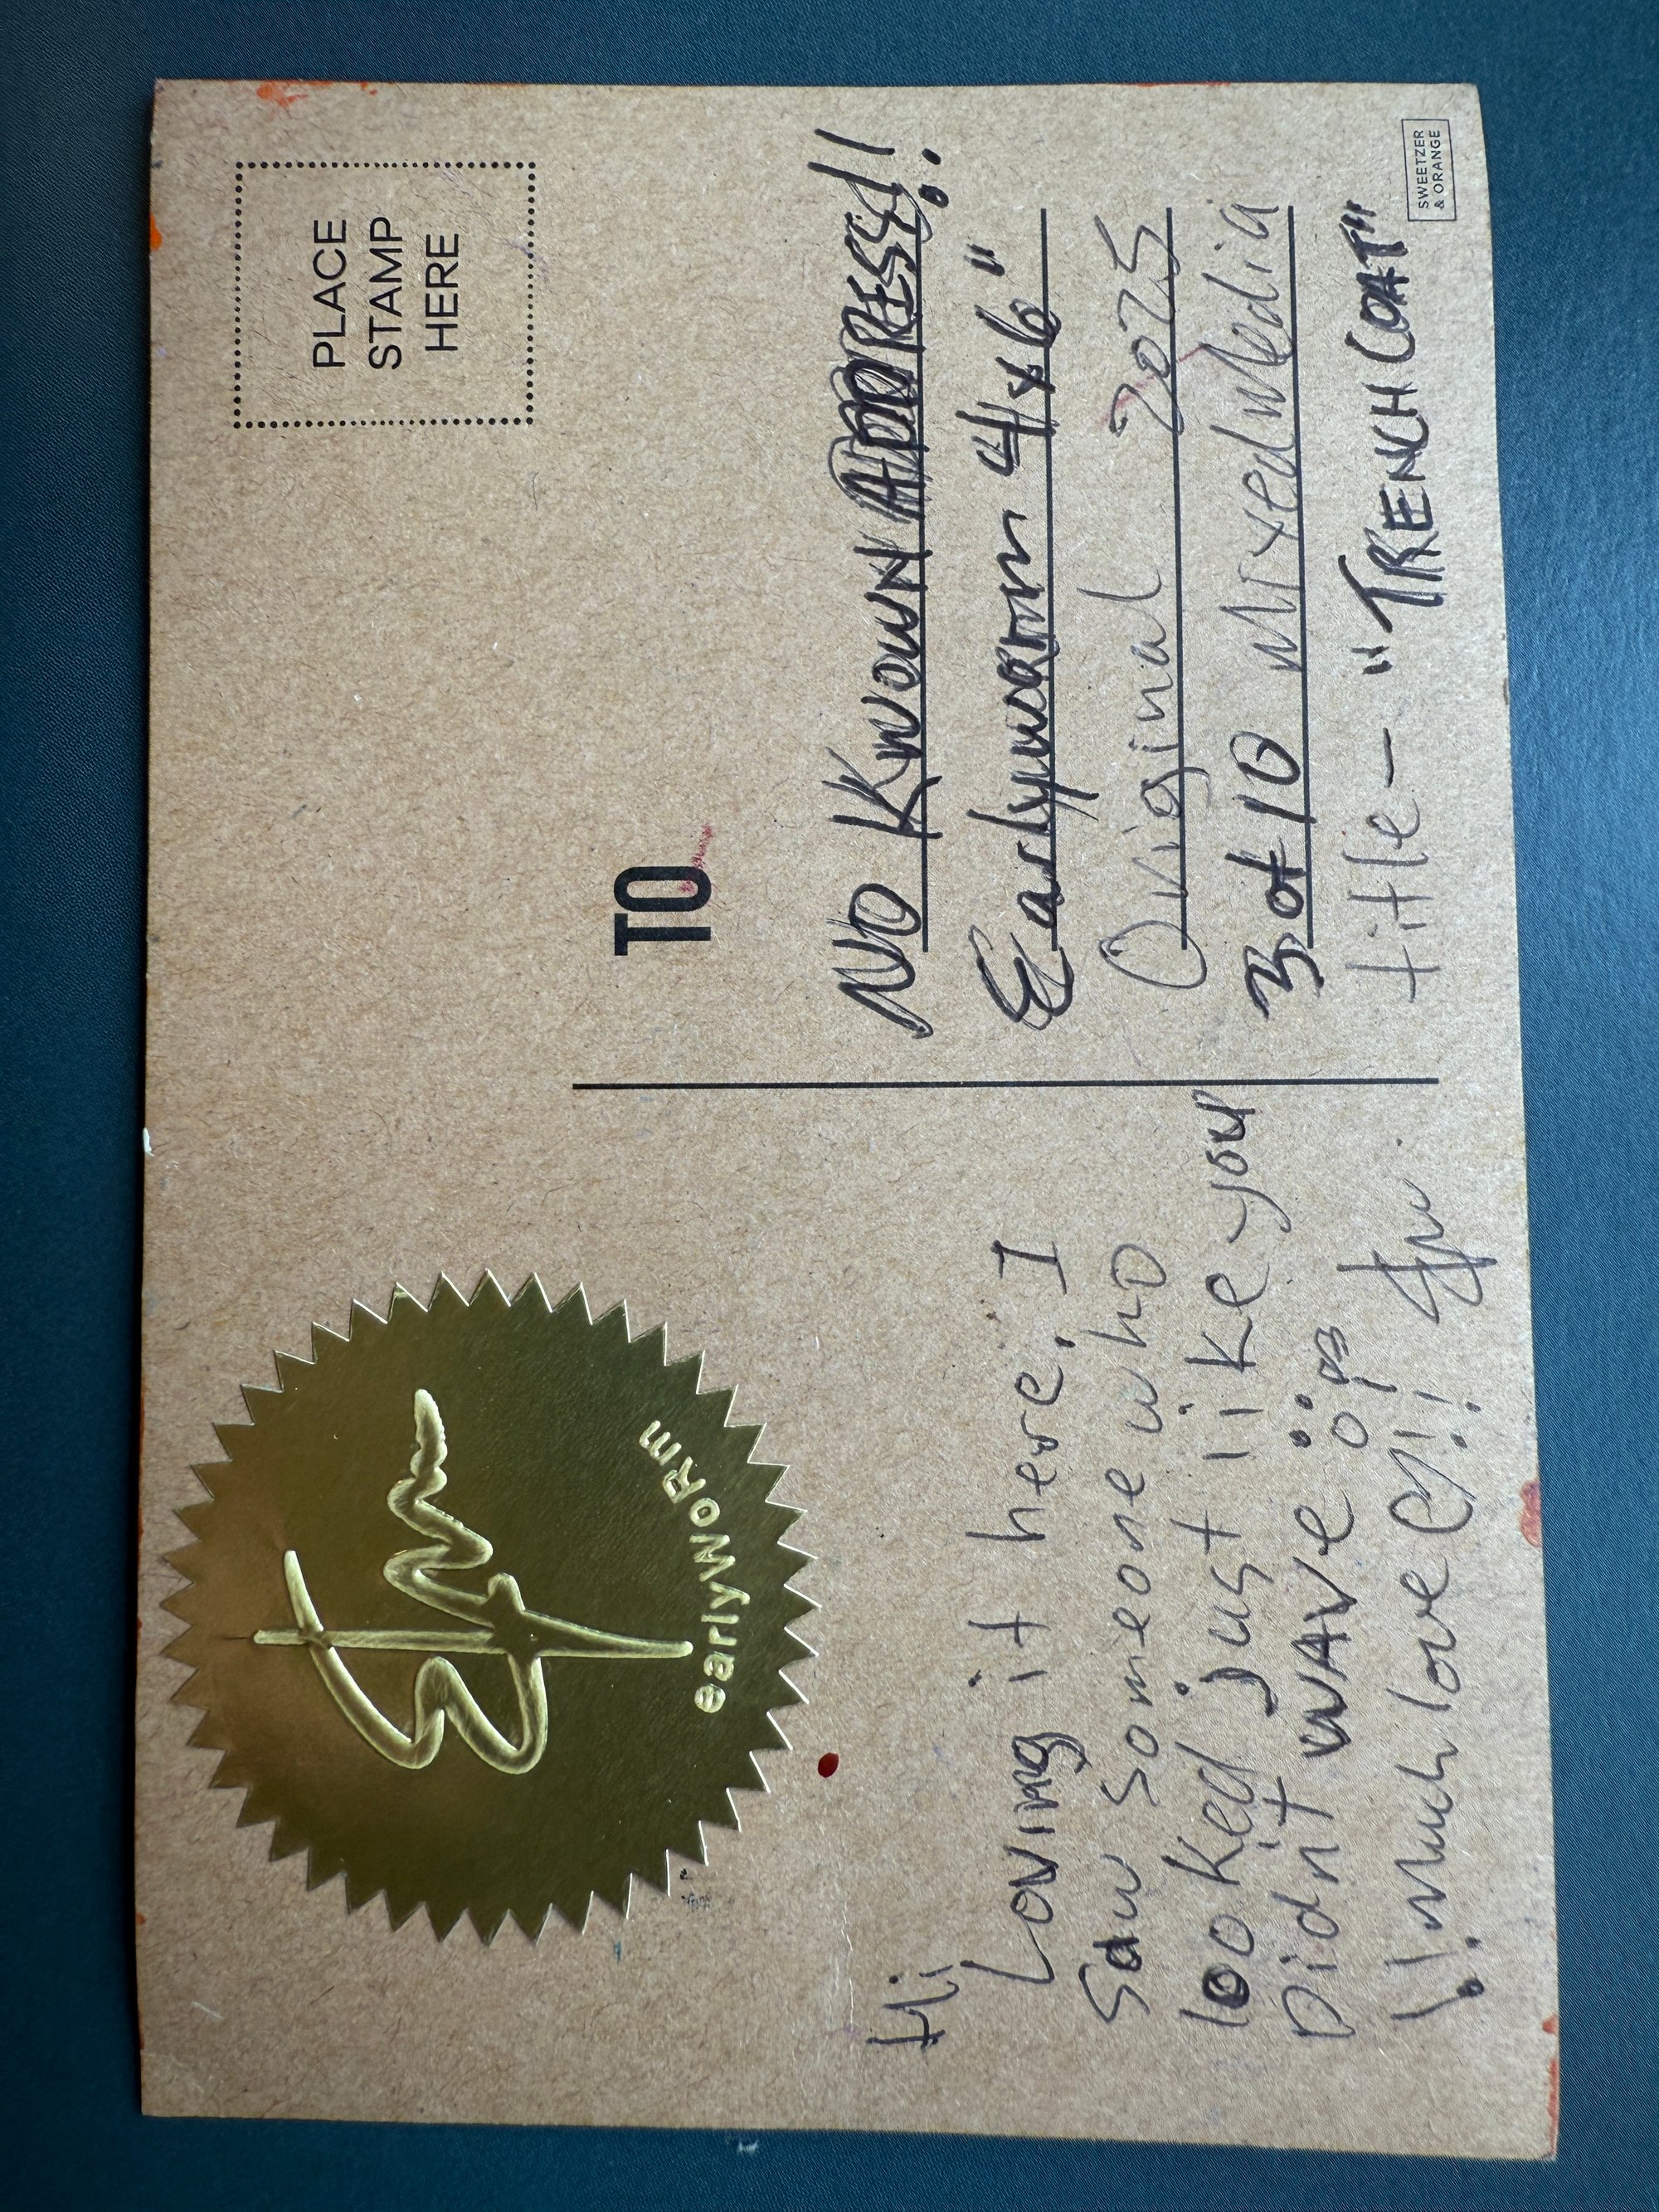 earlyWORm
PLACE
STAMP
HERE
TO
Hi,
Loving it here. I
saw someone who
looked just like you
Didn't WAVE
!! much love !!
NO KNOWN ADDRESS!!
Earlyworm 4x6"
Original 2025
3 of 10 Mixed Media
title - "TRENCH COAT"
SWEETZER
& ORANGE